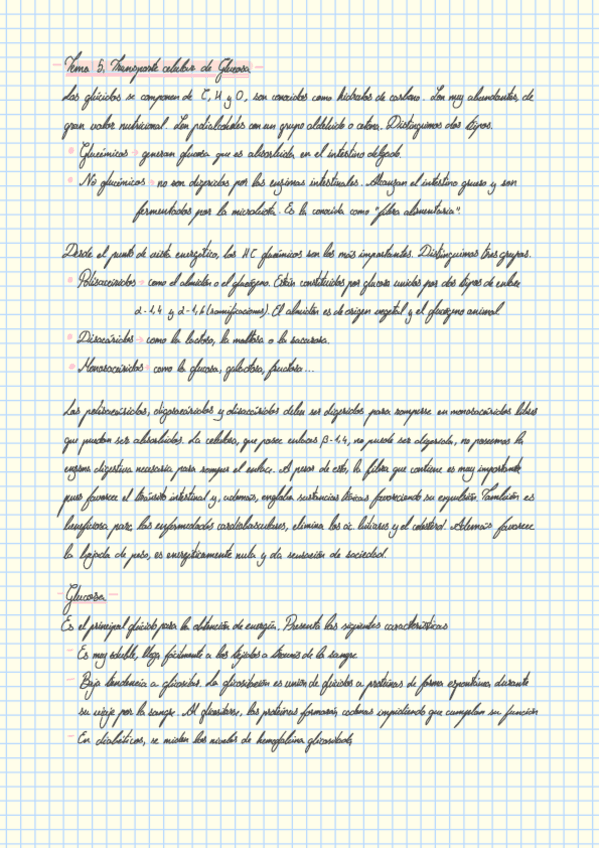 Tema 5. Transporte celular de Glucosa
Los glúcidos se componen de C, H y O, son conocidos como hidratos de carbono. Son muy abundantes, de
gran valor nutricional. Son polialcoholes con un grupo aldehído o cetona. Distinguimos dos tipos.
• Glucémicos → generan glucosa que es absorbida en el intestino delgado.
• No glucémicos → no son digeridos por las enzimas intestinales. Alcanzan el intestino grueso y son
fermentados por la microbiota. Es la conocida como "fibra alimentaria".
Desde el punto de vista energético, los HC glucémicos son los más importantes. Distinguimos tres grupos.
• Polisacáridos → como el almidón o el glucógeno. Están constituidos por glucosa unidas por dos tipos de enlace
α-1,4 y α-1,6 (ramificaciones). El almidón es de origen vegetal y el glucógeno animal
• Disacáridos → como la lactosa, la maltosa o la sacarosa.
• Monosacáridos → como la glucosa, galactosa, fructosa...
Los polisacáridos, oligosacáridos y disacáridos deben ser digeridos para romperse en monosacáridos libres
que puedan ser absorbidos. La celulosa, que posee enlaces β-1.4, no puede ser digerida, no poseemos la
enzima digestiva necesaria para romper el enlace. A pesar de esto, la fibra que contiene es muy importante
pues favorece el tránsito intestinal y, además, engloba sustancias tóxicas favoreciendo su expulsión. También es
beneficiosa para las enfermedades cardiovasculares, elimina los ác. biliares y el colesterol. Además favorece
la bajada de peso, es energéticamente nula y da sensación de saciedad.
Glucosa
Es el principal glúcido para la obtención de energía. Presenta las siguientes características
- Es muy soluble, llega fácilmente a los tejidos a través de la sangre
- Baja tendencia a glicosilar. La glicosilación es unión de glúcidos a proteínas de forma espontánea durante
su viaje por la sangre. Al glicosilarse, las proteínas formarán cadenas impidiendo que cumplan su función
- En diabéticos, se miden los niveles de hemoglobina glicosilada